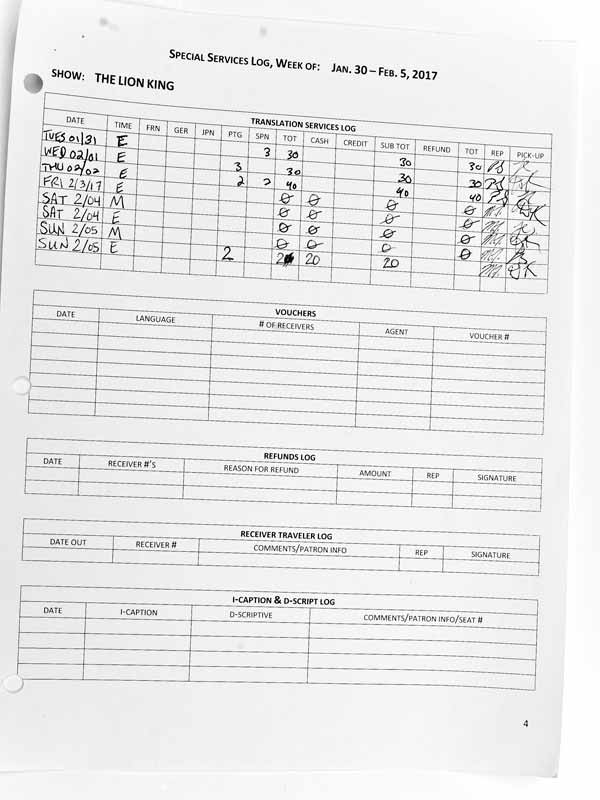 SPECIAL SERVICES LOG, WEEK OF: JAN. 30 – FEB. 5, 2017
SHOW: THE LION KING
TRANSLATION SERVICES LOG
DATE TIME FRN GER JPN PTG SPN TOT CASH CREDIT SUB TOT REFUND TOT REP PICK-UP
TUES 01/31 E 3 30 30 30
WED 02/01 E 3 30 30 30
THU 02/02 E 2 2 40 40 40
FRI 2/3/17 E 0 0 0 0
SAT 2/04 M 0 0 0 0
SAT 2/04 E 0 0 0 0
SUN 2/05 M 0 0 0 0
SUN 2/05 E 2 20 20 20
VOUCHERS
DATE LANGUAGE # OF RECEIVERS AGENT VOUCHER #
REFUNDS LOG
DATE RECEIVER #'S REASON FOR REFUND AMOUNT REP SIGNATURE
RECEIVER TRAVELER LOG
DATE OUT RECEIVER # COMMENTS/PATRON INFO REP SIGNATURE
I-CAPTION & D-SCRIPT LOG
DATE I-CAPTION D-SCRIPTIVE COMMENTS/PATRON INFO/SEAT #
4